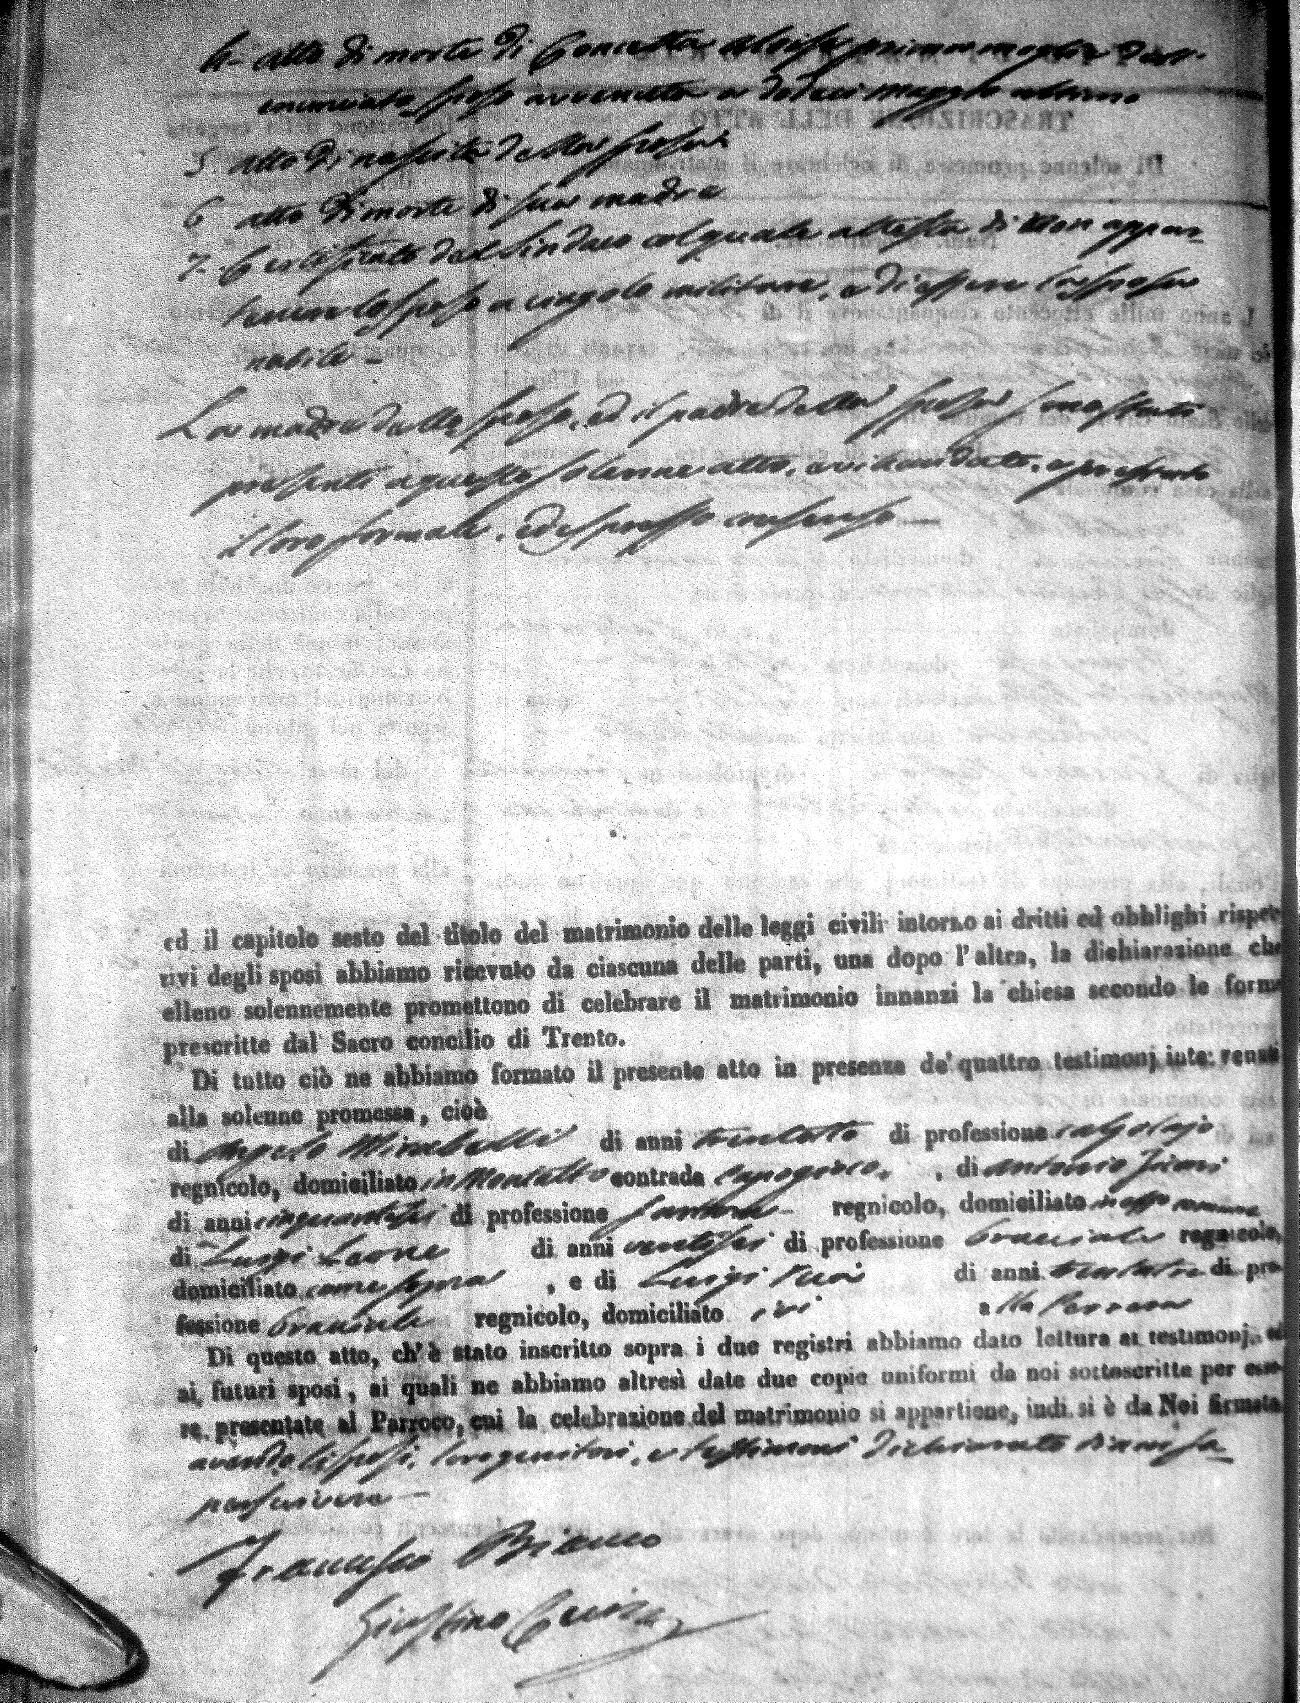 4- atto di morte di Concetta Aloise prima moglie dell'
enunciato sposo avvenuta a dodeci Maggio ultimo
5 atto di nascita della sposa
6 atto di morte di sua madre
7- Certificato del Sindaco col quale attesta di non appar-
tenere lo sposo a cingolo militare, e di essere la sposa
nubile -
La madre dello sposo, ed il padre della sposa
presenti a questo solenne atto, e prestato
il loro formale, ed espresso consenso —
ed il capitolo sesto del titolo del matrimonio delle leggi civili intorno ai dritti ed obblighi rispet-
tivi degli sposi abbiamo ricevuto da ciascuna delle parti, una dopo l'altra, la dichiarazione che
elleno solennemente promettono di celebrare il matrimonio innanzi la chiesa secondo le forme
prescritte dal Sacro concilio di Trento.
Di tutto ciò ne abbiamo formato il presente atto in presenza de' quattro testimonj intervenuti
alla solenne promessa, cioè
di Angelo Mirabelli di anni trentotto di professione calzolajo
regnicolo, domiciliato in Montalto contrada , di Antonio
di anni cinquantasei di professione regnicolo, domiciliato in esso comune
di Luigi Leone di anni ventisei di professione bracciale regnicolo,
domiciliato come sopra , e di Luigi di anni trentatre di pro-
fessione bracciale regnicolo, domiciliato ivi alla
Di questo atto, ch'è stato inscritto sopra i due registri abbiamo dato lettura ai testimonj, ed
ai futuri sposi, ai quali ne abbiamo altresì date due copie uniformi da noi sottoscritte per esse-
re presentate al Parroco, cui la celebrazione del matrimonio si appartiene, indi si è da Noi firmata
avendo li sposi, loro genitori, e testimoni dichiarato di non sa-
per scrivere —
Francesco Bianco
Giustino